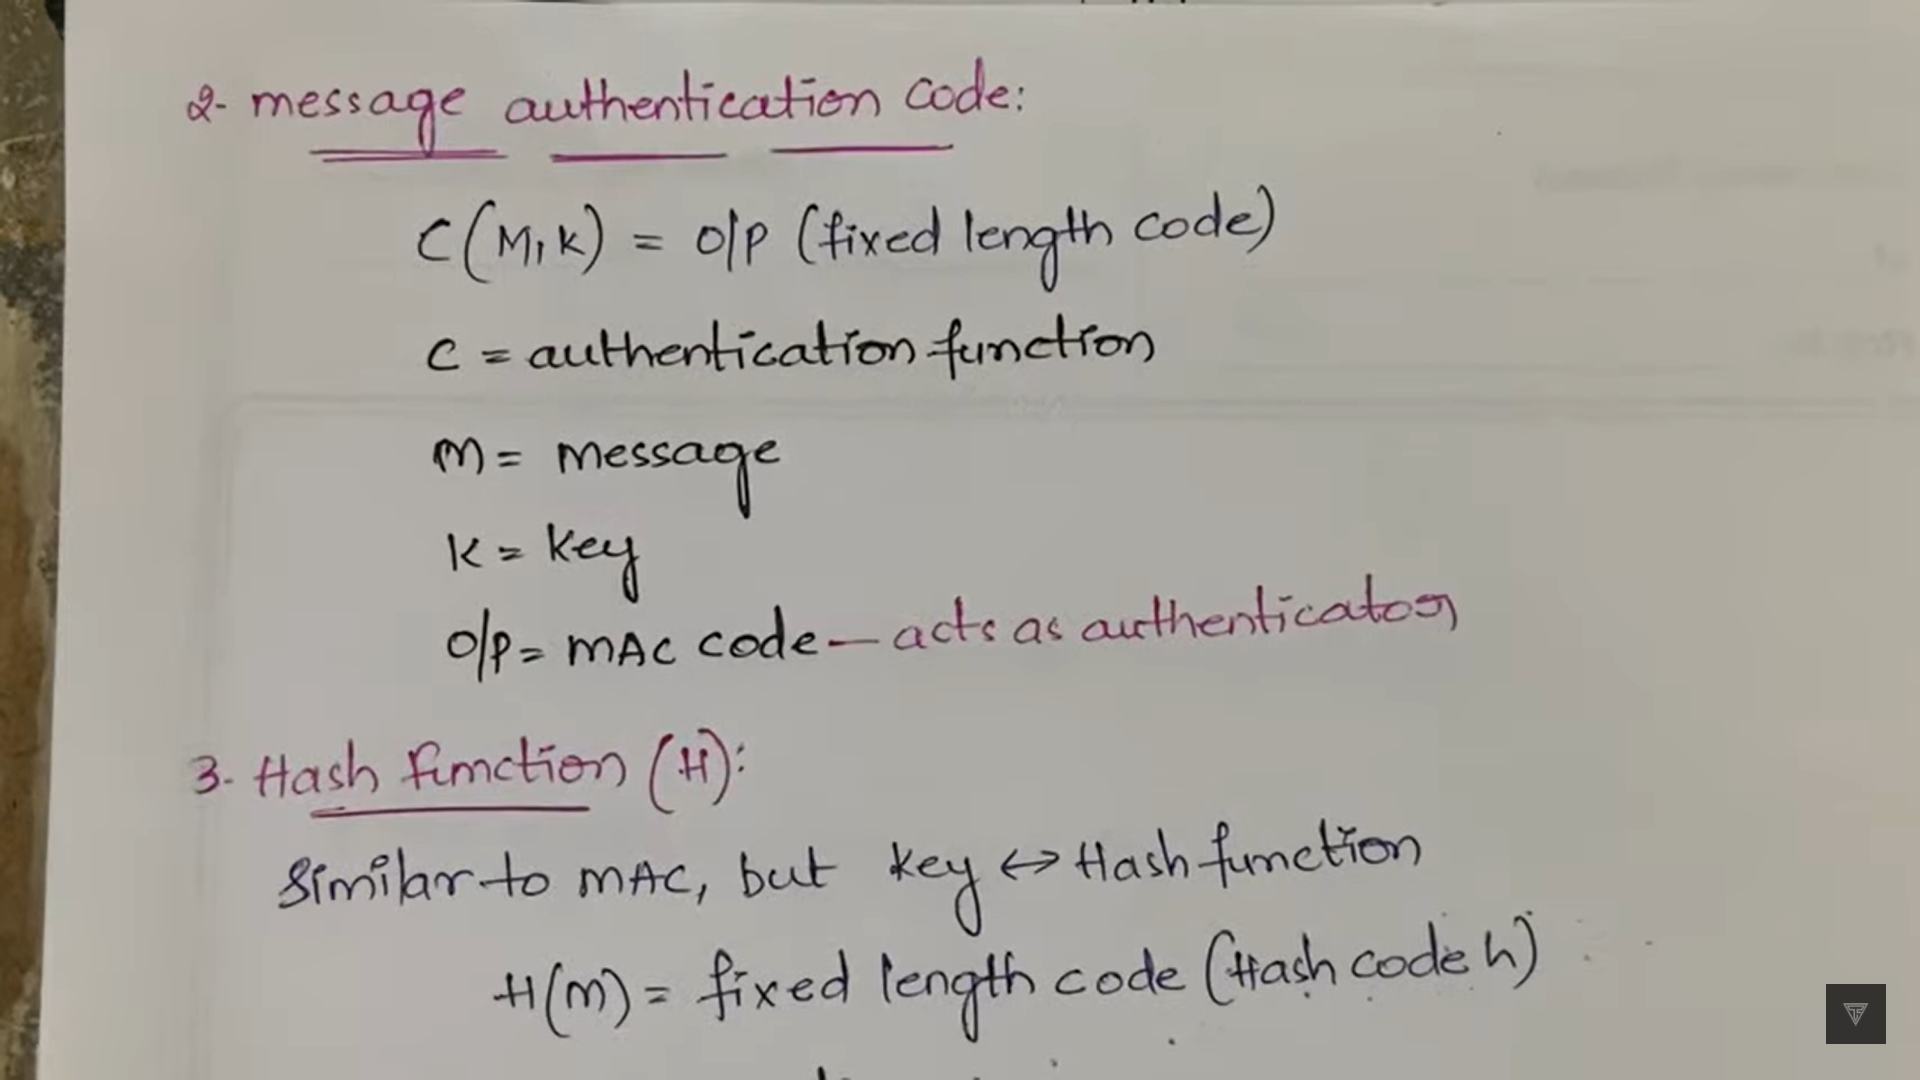 2- message authentication code:
C(M,K) = O/P (fixed length code)
C = authentication function
M = message
K = key
O/P = MAC code - acts as authenticator
3- Hash function (H):
Similar to MAC, but key ↔ Hash function
H(M) = fixed length code (Hash code h)